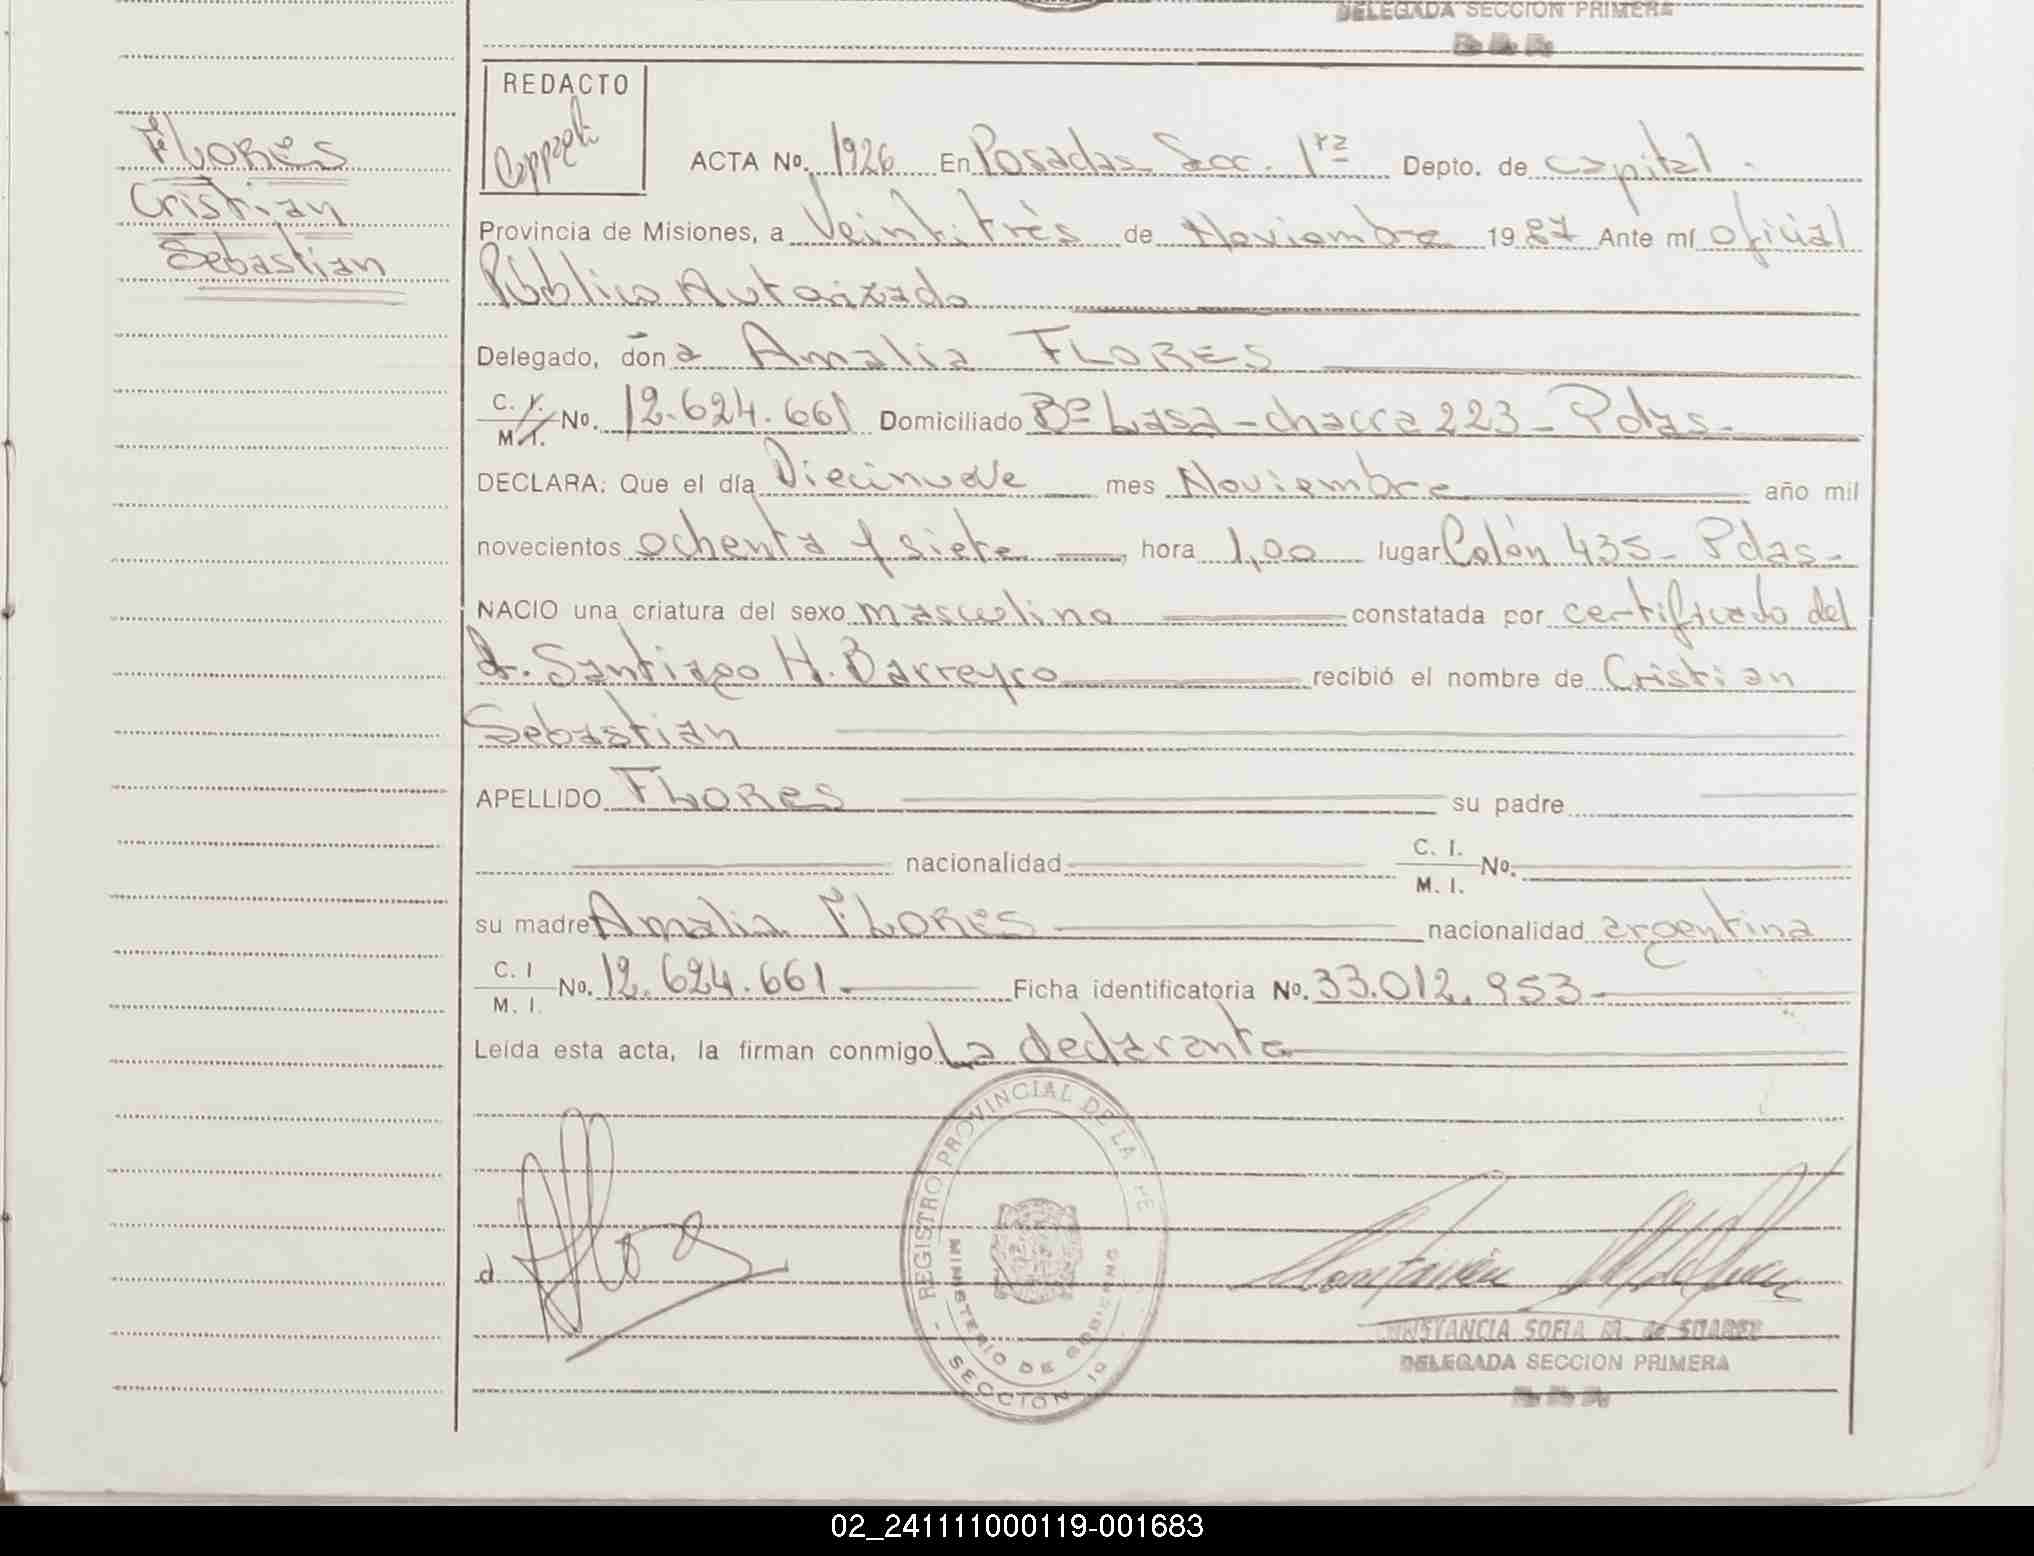 DELEGADA SECCION PRIMERA
REDACTO
FLORES
Cristian
Sebastian
ACTA No. 1926 En Posadas Secc. 1ra Depto. de Capital.
Provincia de Misiones, a Veintitrés de Noviembre 1987 Ante mí oficial
Público Autorizado
Delegado, don a Amalia FLORES
C. I. M. I. No. 12.624.661 Domiciliado Bº Lasa - chacra 223 - Pdas -
DECLARA: Que el día Diecinueve mes Noviembre año mil
novecientos ochenta y siete, hora 1,00 lugar Colón 435 - Pdas -
NACIO una criatura del sexo masculino constatada por certificado del
dr. Santiago H. Barreyro recibió el nombre de Cristian
Sebastian
APELLIDO FLORES su padre
nacionalidad C. I. M. I. No.
su madre Amalia FLORES nacionalidad argentina
C. I M. I. No. 12.624.661 - Ficha identificatoria No. 33.012.953 -
Leída esta acta, la firman conmigo La declarante
REGISTRO PROVINCIAL DE LA
MINISTERIO DE GOBIERNO
- SECCION 1a
d
CONSTANCIA SOFIA M. de SUAREZ
DELEGADA SECCION PRIMERA
02_241111000119-001683